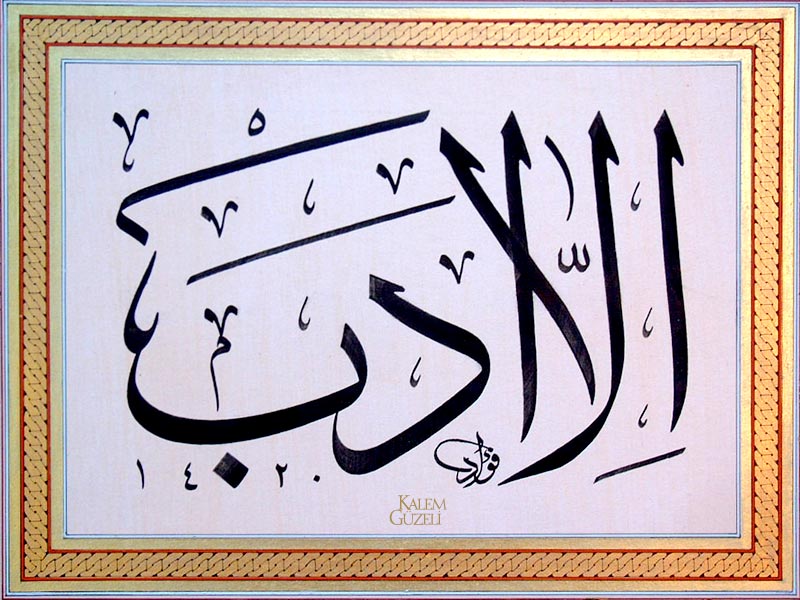 اِلَّا اَدَبْ
فؤاد
١٤٢٠
KALEM
GÜZELİ